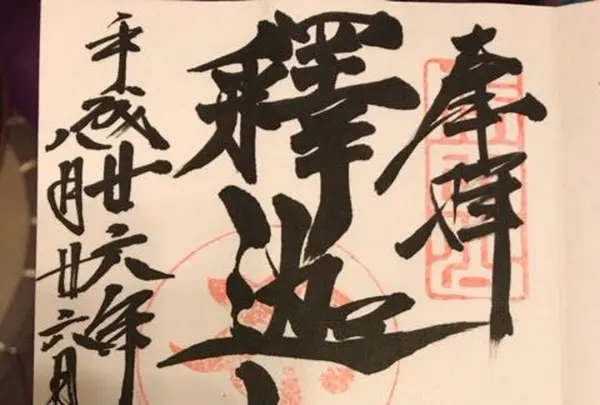 奉拝
釋迦
平成廿六年
八月廿六日